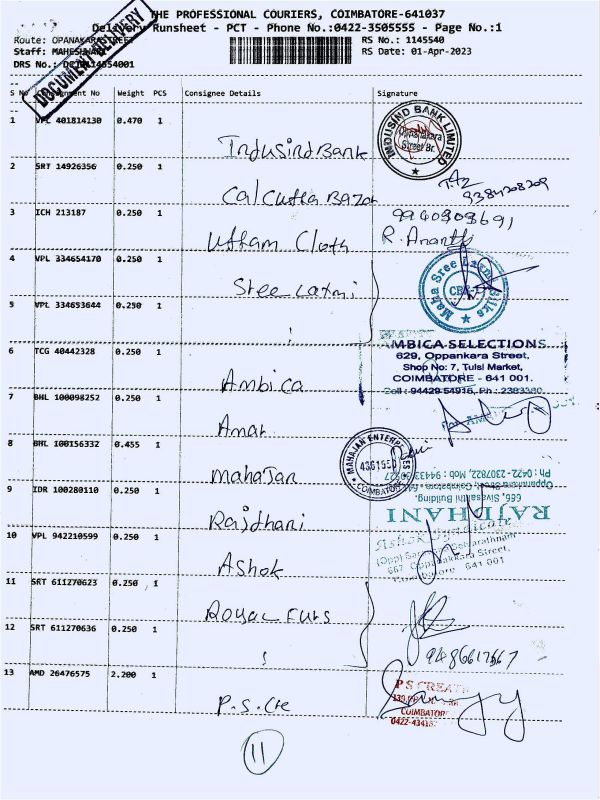 THE PROFESSIONAL COURIERS, COIMBATORE-641037
Delivery Runsheet - PCT - Phone No.:0422-3505555 - Page No.:1
DOCUMENT DELIVERY
Route: OPANAKARA STREET
RS No.: 1145540
Staff: MAHESHWARI
RS Date: 01-Apr-2023
DRS No.:
S No Consignment No Weight PCS Consignee Details Signature
1 VPL 401814130 0.470 1
IndusindBank
INDUSIND BANK LIMITED
Oppanakara
Street Br.
2 SRT 14926356 0.250 1
Calcutta Bazar
9384208209
3 ICH 213187 0.250 1
Uttam Cloth
9940909691
R. Ananth
4 VPL 334654170 0.250 1
Sree Laxmi
Maha Sree Laxmi Silks
CBE-1
5 VPL 334653644 0.250 1
6 TCG 40442328 0.250 1
Ambica
AMBICA SELECTIONS
629, Oppankara Street,
Shop No: 7, Tulsi Market,
COIMBATORE - 641 001.
Cell : 94429 54916, Ph.: 2383380
7 BHL 100098252 0.250 1
Amar
8 BHL 100156332 0.455 1
mahajan
MAHAJAN ENTERPRISES
COIMBATORE
9 IDR 100280110 0.250 1
Rajdhani
RAJDHANI
666, Sivasakthi Building,
Oppanakara Street, Coimbatore
Ph : 0422 - 2307822, Mob : 94433
10 VPL 942210599 0.250 1
Ashok
Ashok Syndicate
667 Oppanakkara Street,
Coimbatore 641 001
11 SRT 611270623 0.250 1
Royal Furs
12 SRT 611270636 0.250 1
9486617667
13 AMD 26476575 2.200 1
P.S.Cte
P S CREAT
COIMBATORE
11